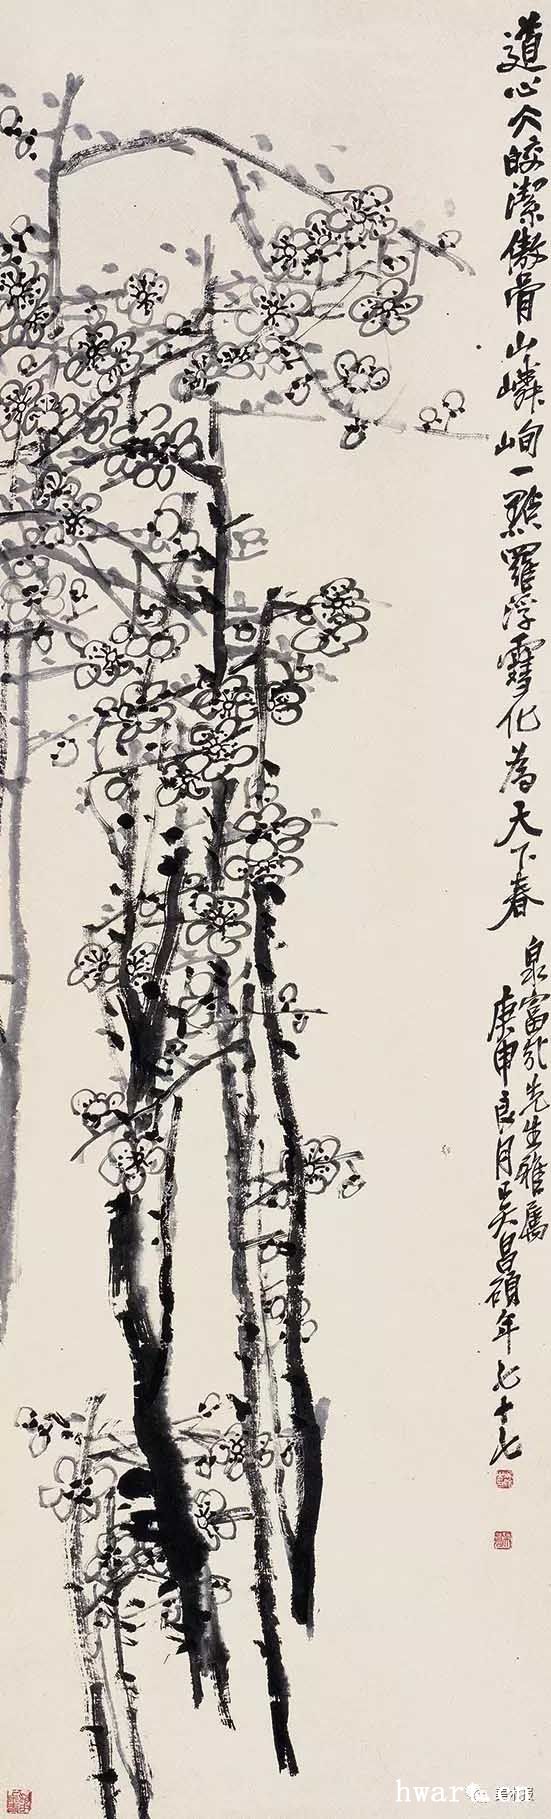 道心大皎潔傲骨山嶙峋一點羅浮雪化為天下春
泉富先生雅屬
庚申良月吳昌碩年七十七